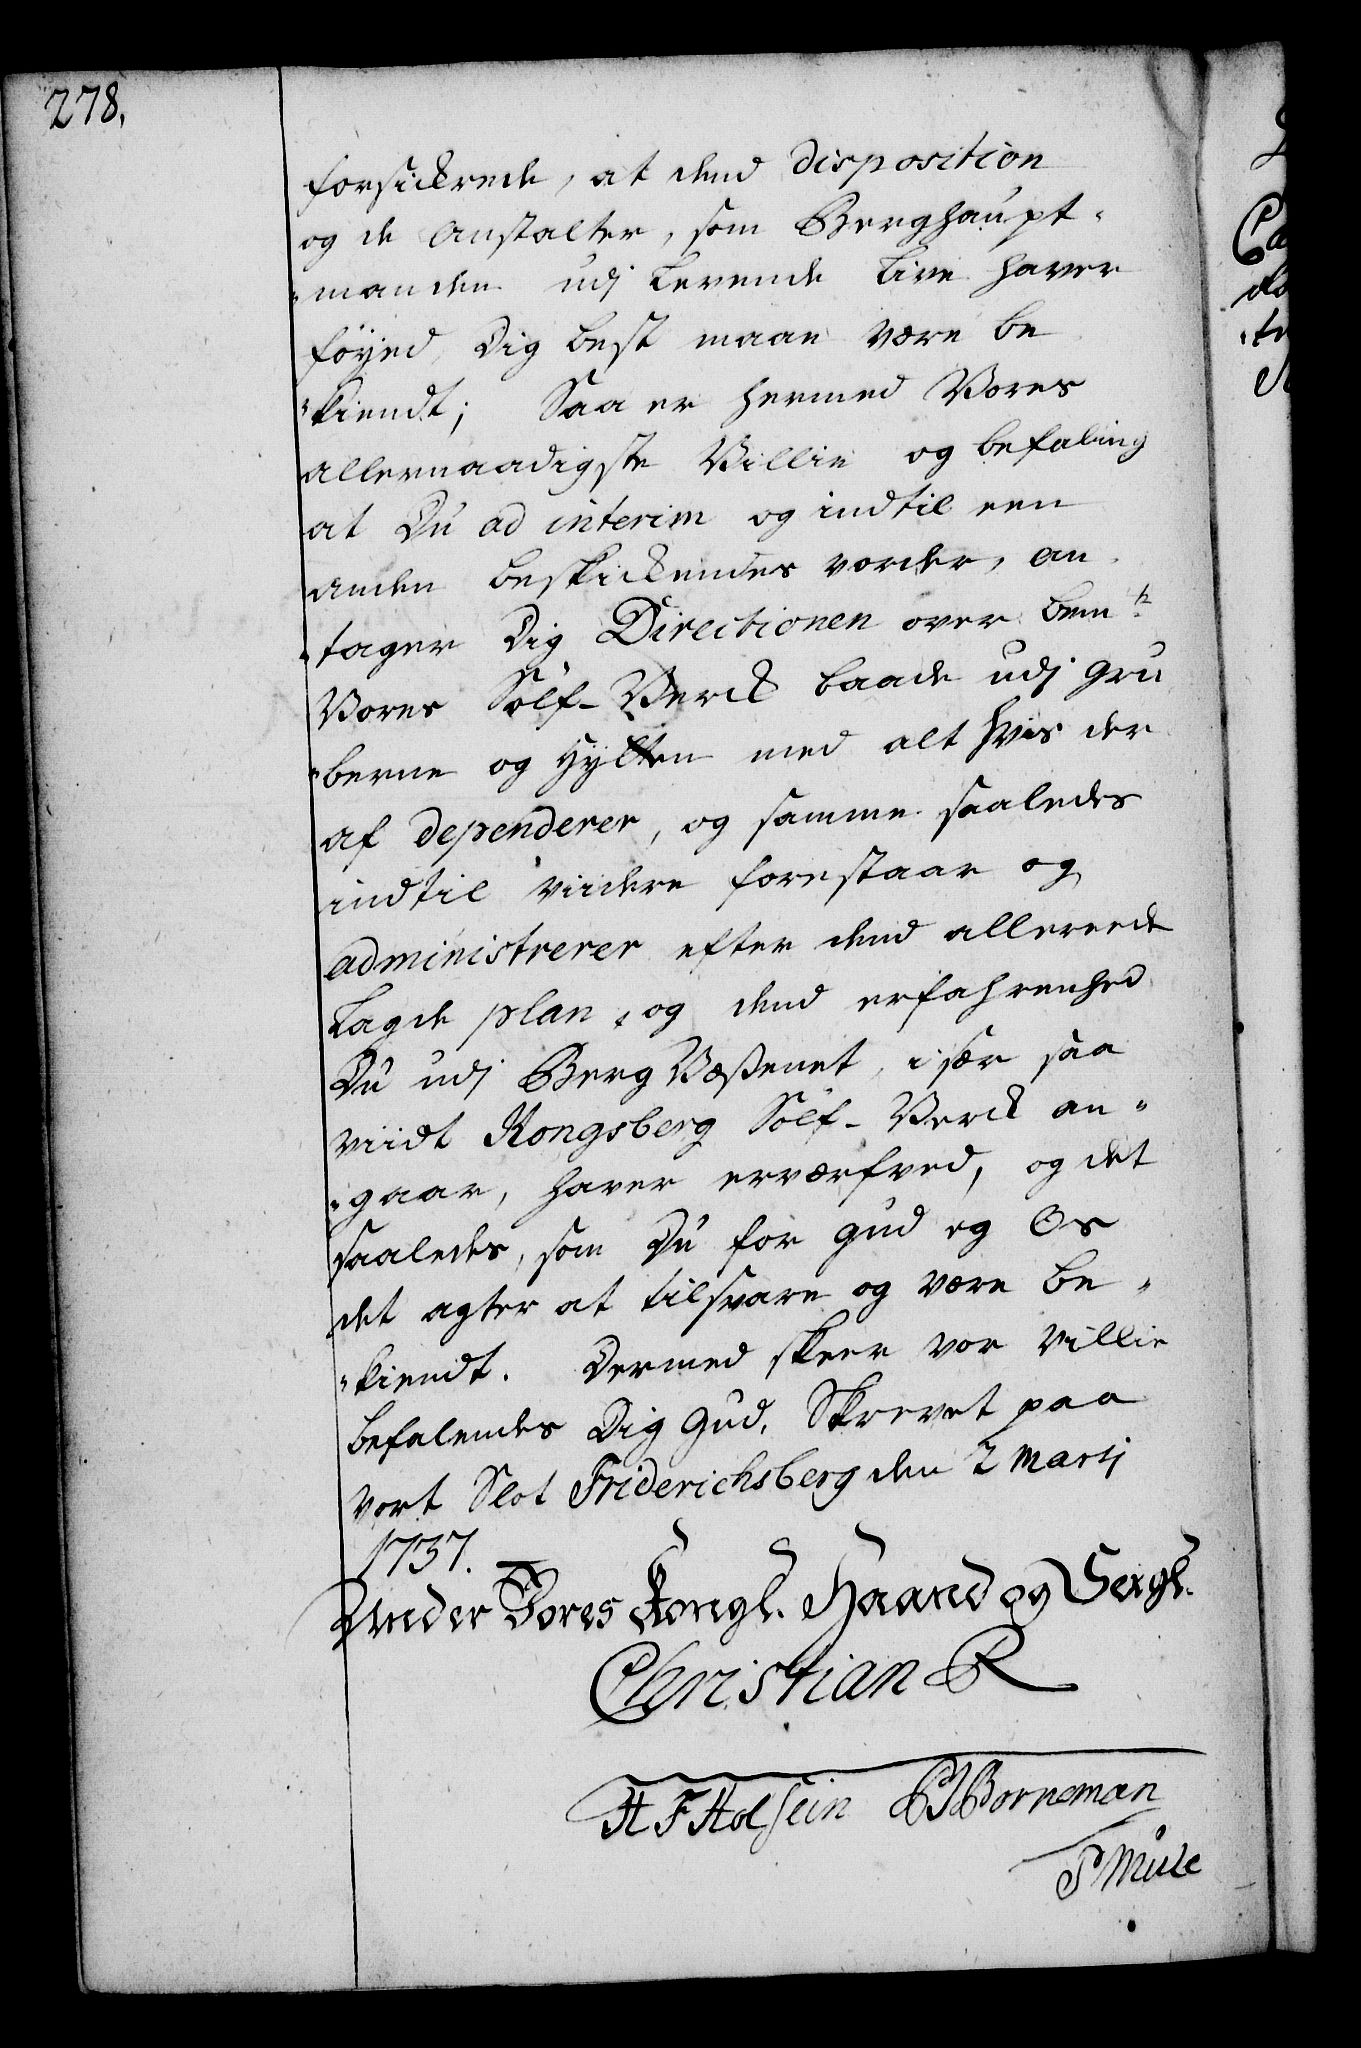 278.
forsickrede, at dend disposition
og de Anstalter, som Berghaupt-
manden udj Levende Live haver
föyed, Dig best maae være be
kiendt; Saa er hermed Vores
allernaadigste Villie og befaling
at Du ad interim og indtil een
anden beskickendes vorder, an
tager Dig Directionen over bemte
Vores Sölf-Verck baade udj Gru
berne og Hytten med alt hvis der
af dependerer, og samme saaledes
indtil viidere forestaar og
administrerer efter dend allereede
Lagde plan, og dend erfahrenhed
Du udj Berg Væßenet, i sær saa
viidt Kongsberg Sölf-Verck an-
gaar, haver erværfved, og det
saaledes, som Du for Gud og Os
det agter at tilsvare og være be-
kiendt. Dermed skeer vor Villie
befalendes Dig Gud. Skrevet paa
vort Slot Friderichsberg den 2 Martj
1737.
Under Vores Kongl. Haand og Seigl.
Christian R
H F Holstein P J Borneman
P Mule